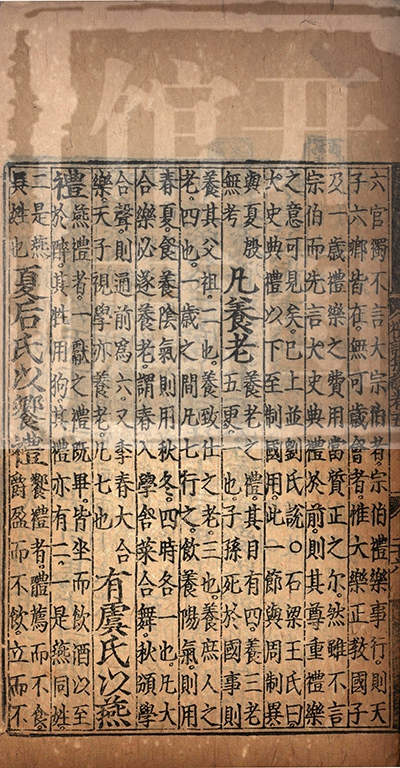 六官獨不言大宗伯者。宗伯禮樂事行。則天
子六鄉皆在。無可歲會者。惟大樂正教國子
及一歲禮樂之費用當質正之尔。然雖不言
宗伯而先言大史典禮於前。則其尊重禮樂
之意可見矣。已上並劉氏說。○石梁王氏曰
大史典禮以下至制國用。此一節與周制異
與夏殷
無考
凡養老
養老之禮。其目有四。養三老
五更。一也。子孫死於國事。則
養其父祖。二也。養致仕之老。三也。養庶人之
老。四也。一歲之間。凡七行之。飲養陽氣。則用
春夏。食養陰氣。則用秋冬。四時各一也。凡大
合樂必遂養老。謂春入學。舍菜合舞。秋頒學
合聲。則通前爲六。又季春大合
樂。天子視學亦養老。凡七也
有虞氏以燕
禮
燕禮者。一獻之禮既畢。皆坐而飲酒。以至
於醉。其牲用狗。其禮亦有二。一是燕同姓。
二是燕
異姓也
夏后氏以饗禮
饗禮者。體薦而不食。
爵盈而不飲。立而不